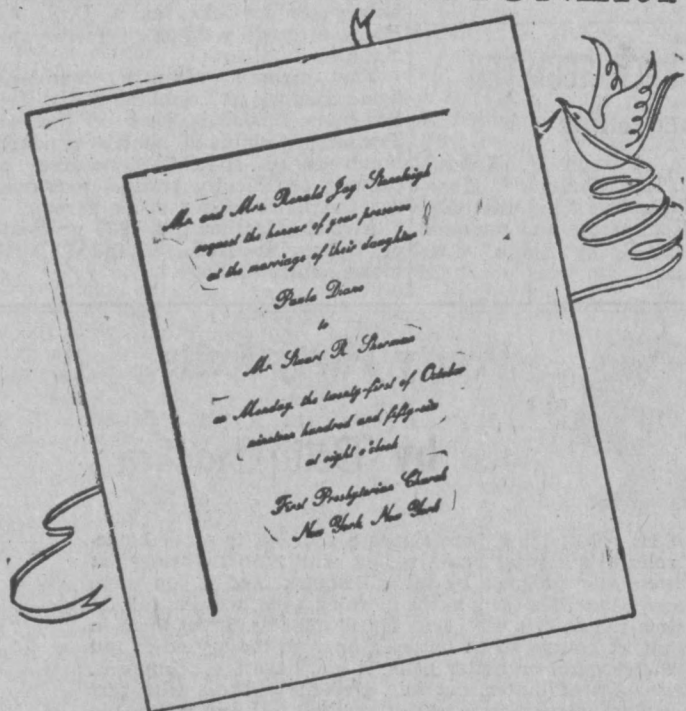 Mr. and Mrs. Ronald Jay
request the honour of your presence
at the marriage of their daughter
Paula Diane
to
Mr. Stuart R. Sherman
on Monday, the twenty-first of October
nineteen hundred and fifty-six
at eight o'clock
First Presbyterian Church
New York, New York